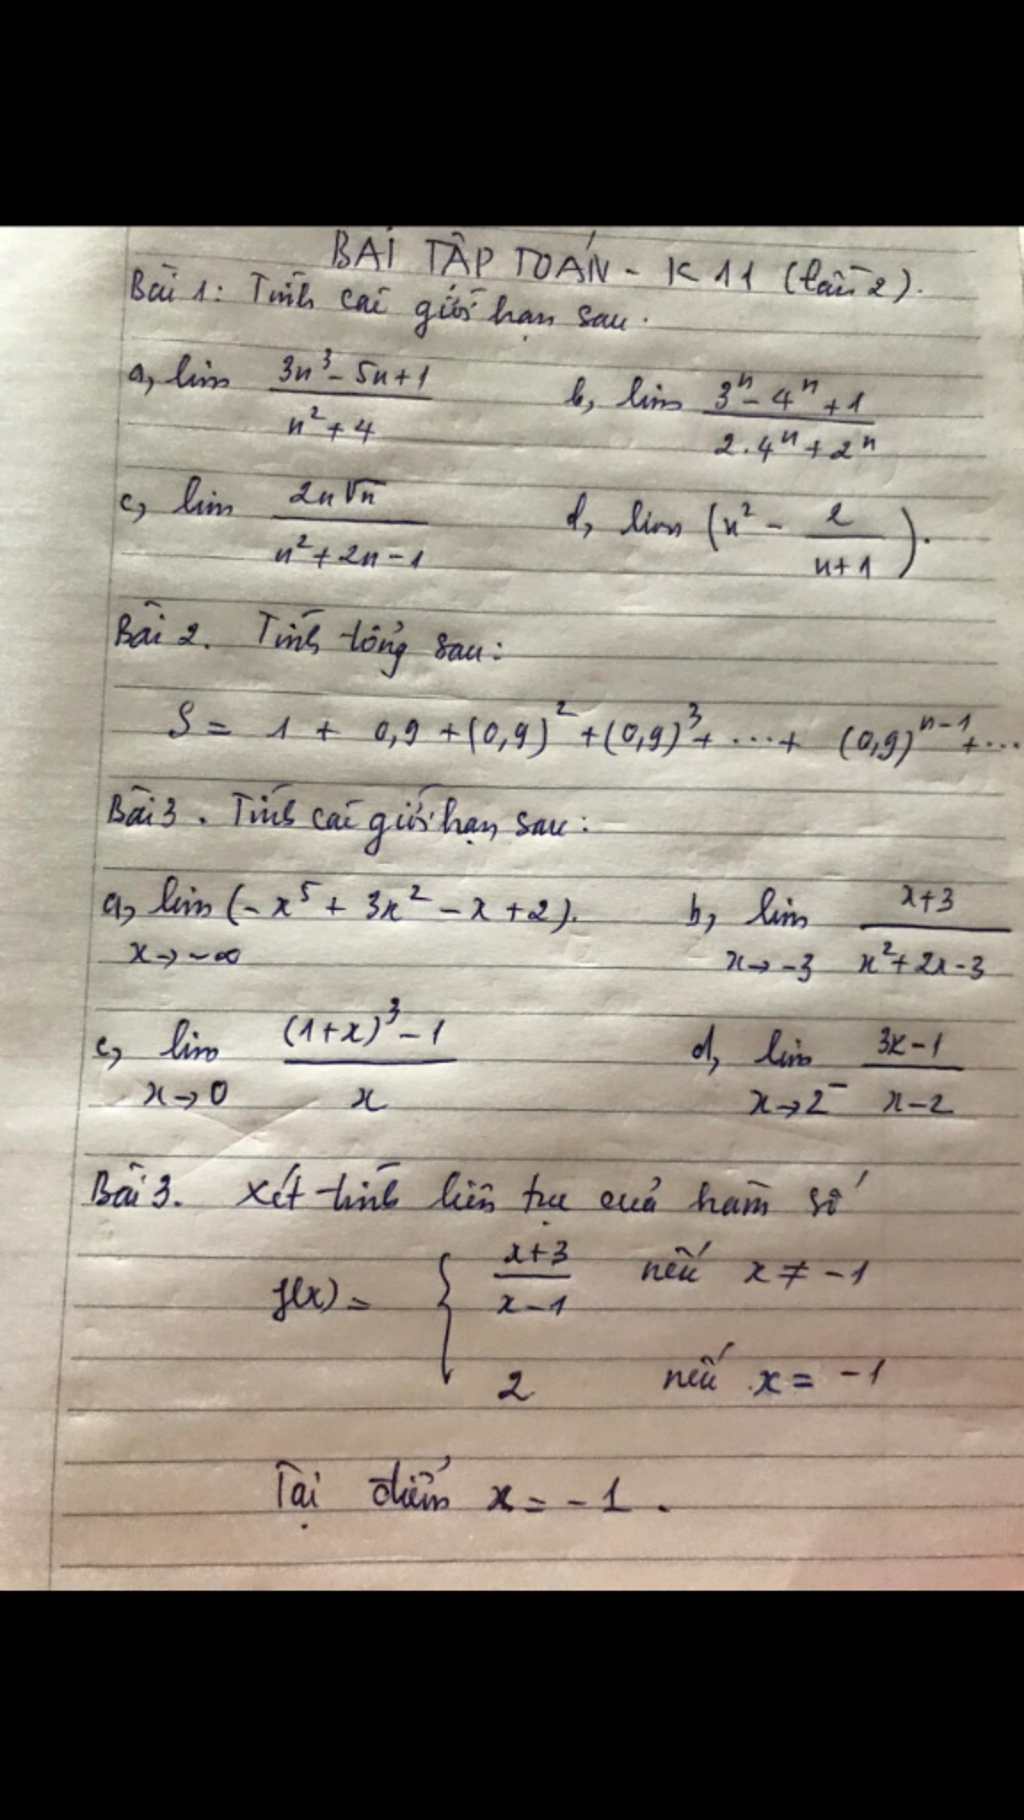 BÀI TẬP TOÁN - K11 (lần 2).
Bài 1: Tính các giới hạn sau.
a, lim (3n³ - 5n + 1)/(n² + 4)    b, lim (3ⁿ - 4ⁿ + 1)/(2.4ⁿ + 2ⁿ)
c, lim (2n√n)/(n² + 2n - 1)    d, lim (n² - 2/(n+1)).
Bài 2. Tính tổng sau:
S = 1 + 0,9 + (0,9)² + (0,9)³ + ... + (0,9)ⁿ⁻¹ + ...
Bài 3. Tính các giới hạn sau:
a, lim x→-∞ (-x⁵ + 3x² - x + 2).    b, lim x→-3 (x+3)/(x² + 2x - 3)
c, lim x→0 ((1+x)³ - 1)/x    d, lim x→2⁻ (3x-1)/(x-2)
Bài 3. Xét tính liên tục của hàm số
f(x) = { (x+3)/(x-1) nếu x ≠ -1
2 nếu x = -1
Tại điểm x = -1.